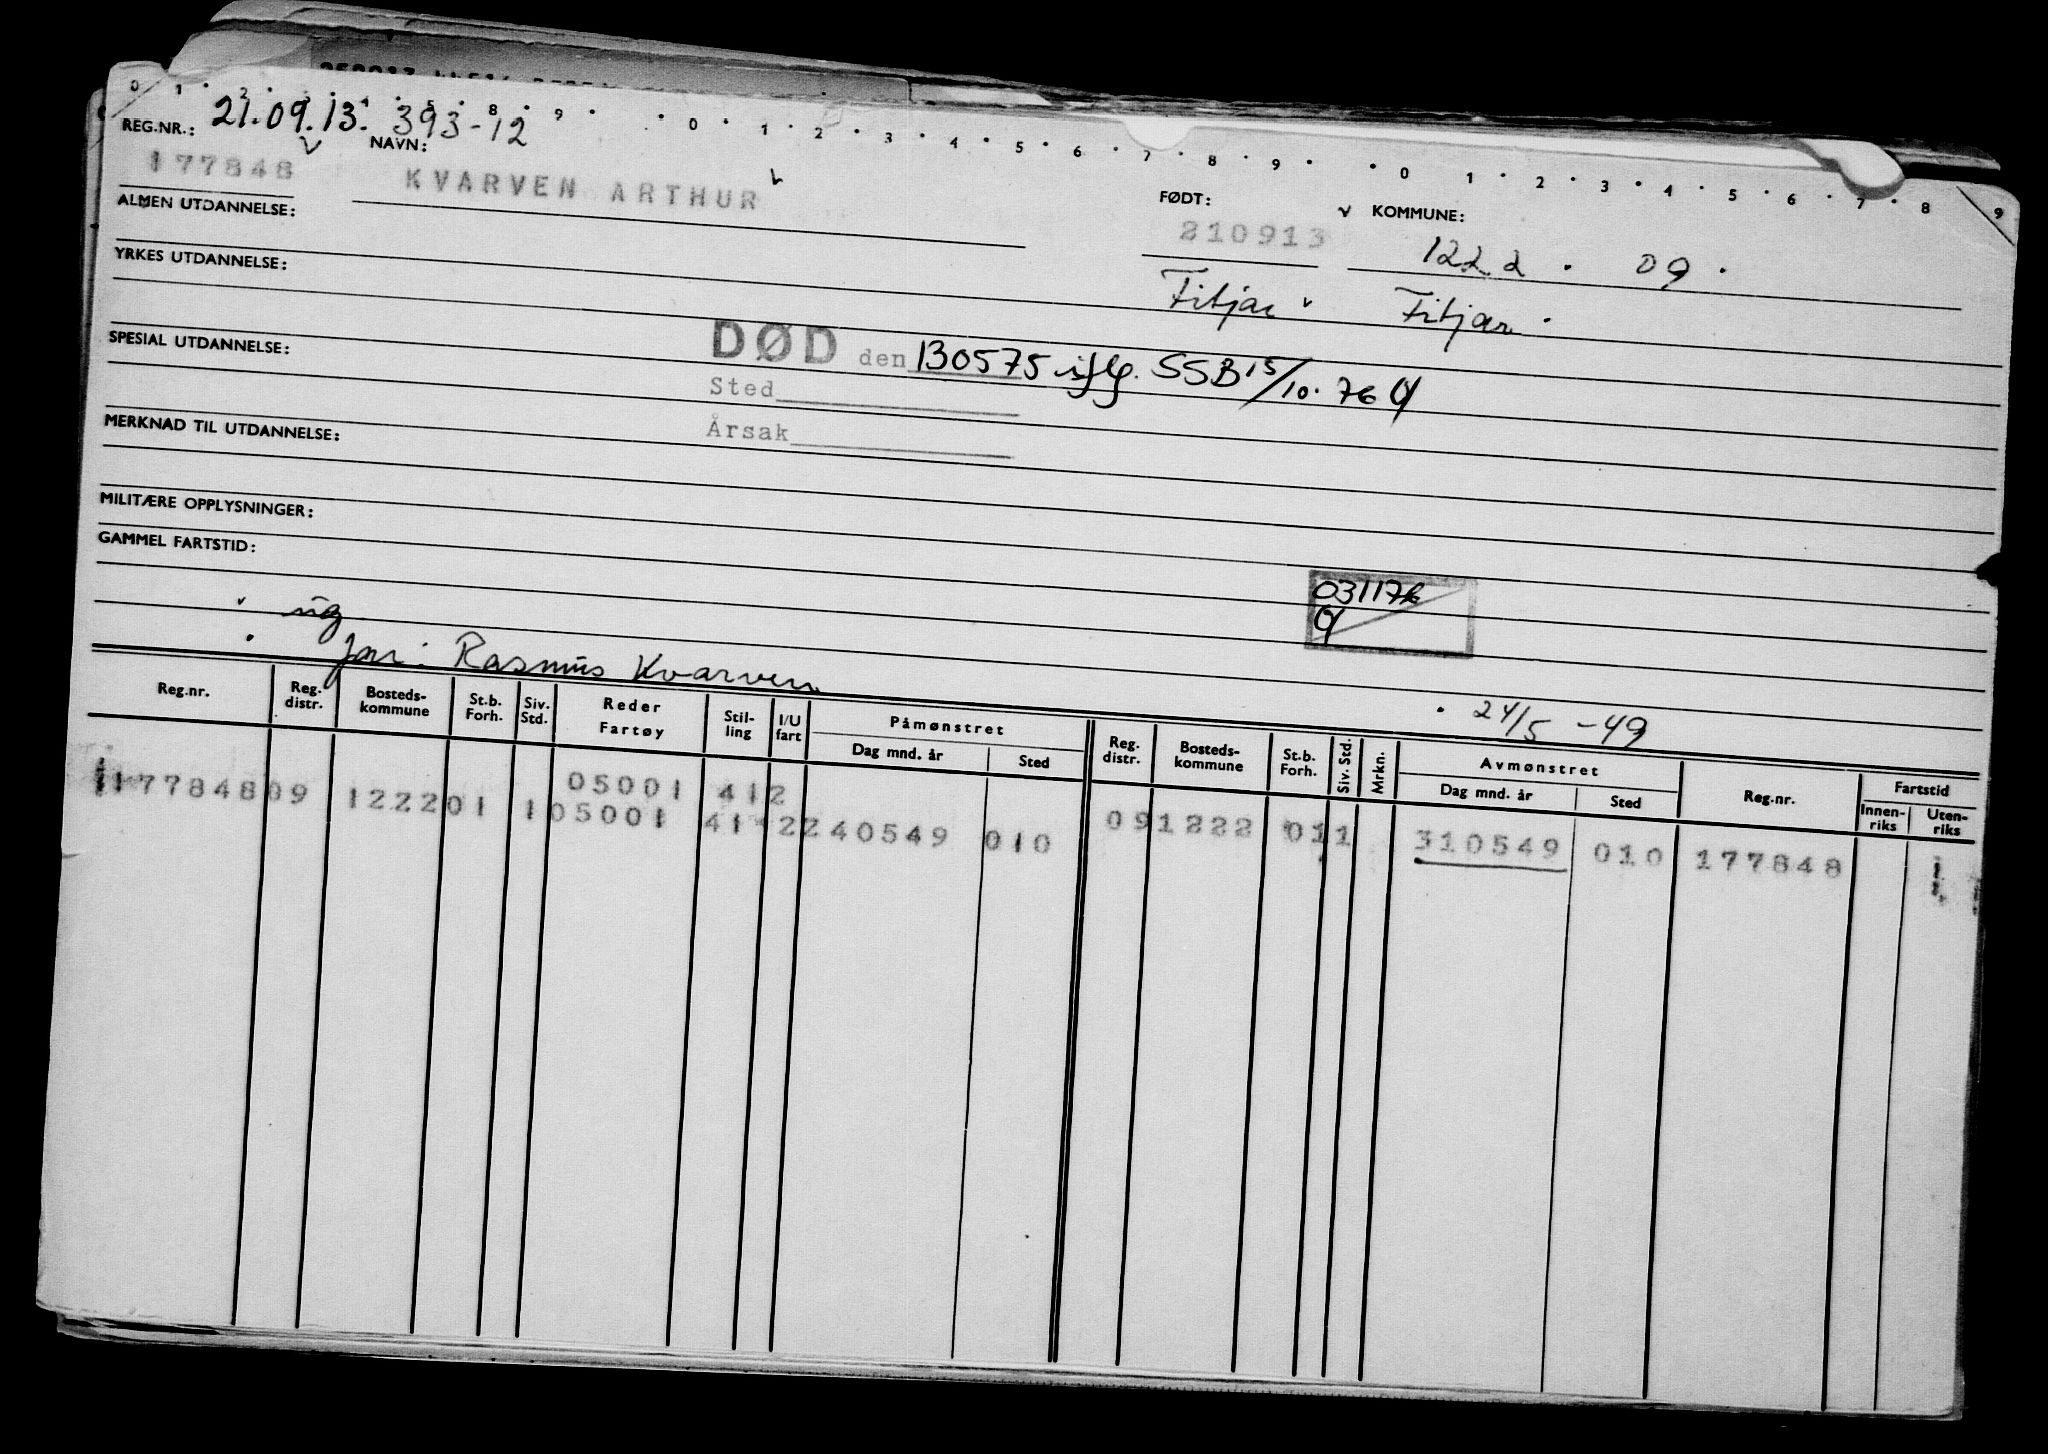 0 1 2 3 4 5 8 9 0 1 2 3 4 5 6 7 8 9 0 1 2 3 4 5 6 7 8 9
REG.NR.: 21.09.13. 393-12
NAVN:
177848 KVARVEN ARTHUR
FØDT: KOMMUNE:
210913 1222 . 09 .
Fitjar Fitjar .
ALMEN UTDANNELSE:
YRKES UTDANNELSE:
SPESIAL UTDANNELSE:
DØD den 130575 iflg. SSB 15/10.76
Sted
Årsak
MERKNAD TIL UTDANNELSE:
MILITÆRE OPPLYSNINGER:
GAMMEL FARTSTID:
031176
ug
far: Rasmus Kvarven
. 24/5 -49
Reg.nr. Reg. distr. Bosteds-kommune St.b. Forh. Siv. Std. Reder Fartøy Stil-ling I/U fart Påmønstret Dag mnd. år Sted Reg. distr. Bosteds-kommune St.b. Forh. Siv. Std. Mrkn. Avmønstret Dag mnd. år Sted Reg.nr. Fartstid Innen-riks Uten-riks
05001 412
177848 09 1222 01 1 05001 41 2 240549 010 09 1222 01 1 310549 010 177848